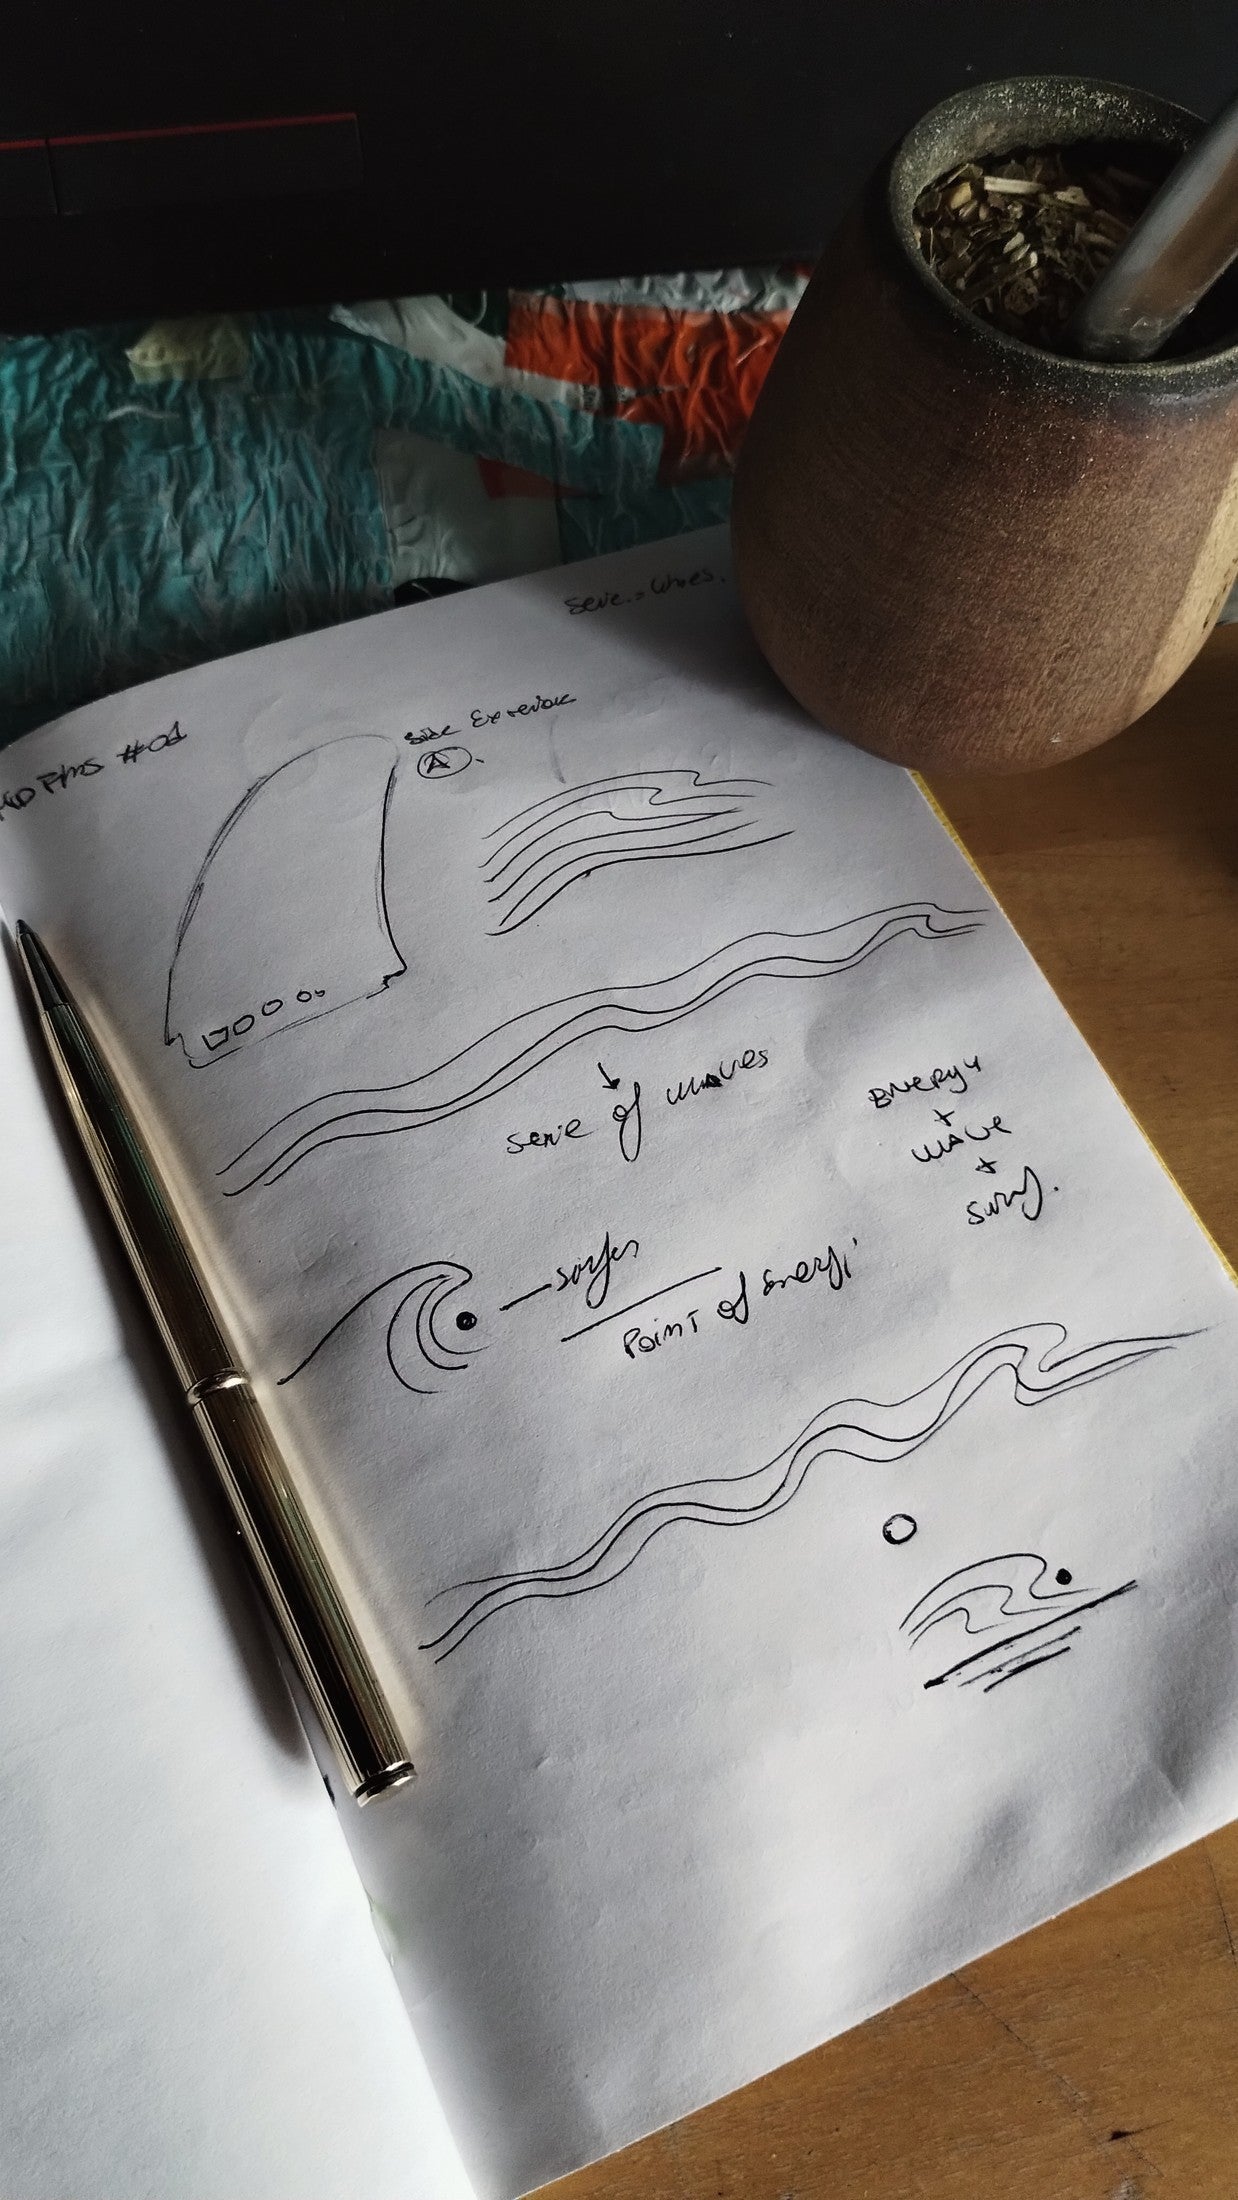 Fins #01
Side Exterior
A.
Serie of waves
Energy
+
wave
+
Surf.
surfer
Point of Energy